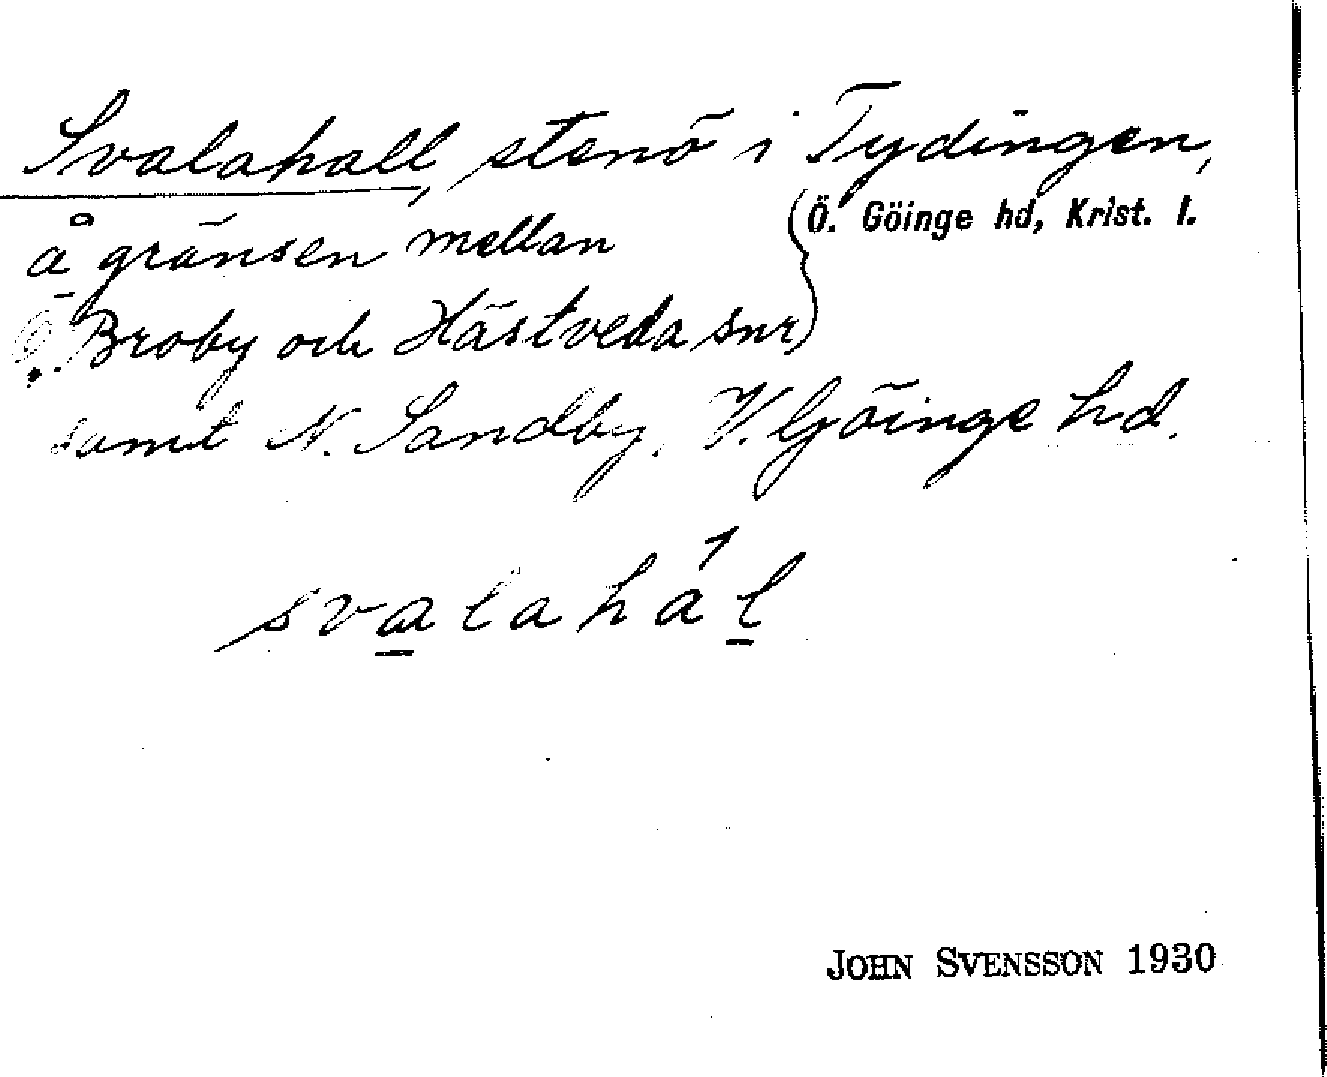 Svalahall, stenö i Tydingen,
å gränsen mellan (Ö. Göinge hd, Krist. l.
Ö. Broby och Hästveda snr)
samt N. Sandby, V. Göinge hd.
svalahál
JOHN SVENSSON 1930